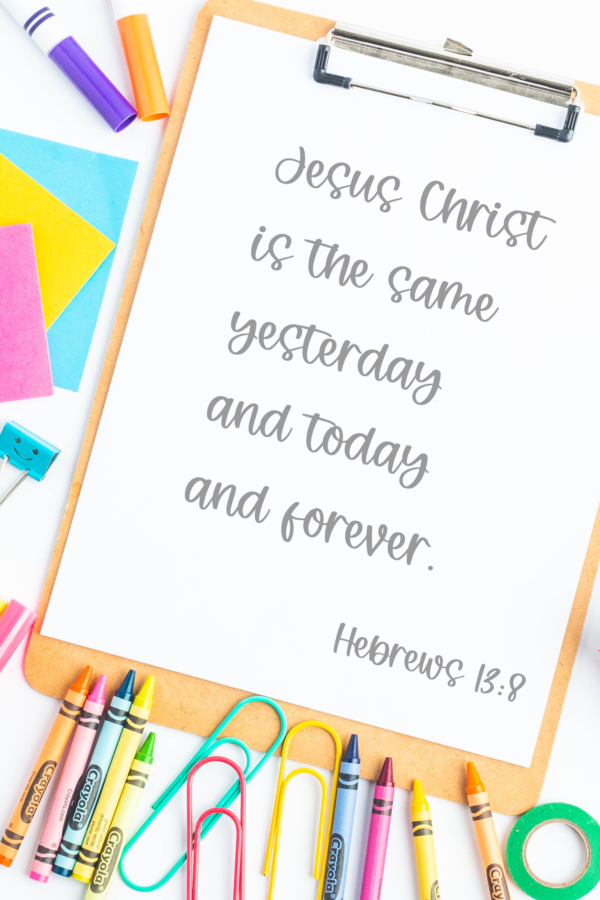 Jesus Christ
is the same
yesterday
and today
and forever.
Hebrews 13:8
Crayola
Crayola
Crayola
Crayola
Crayola